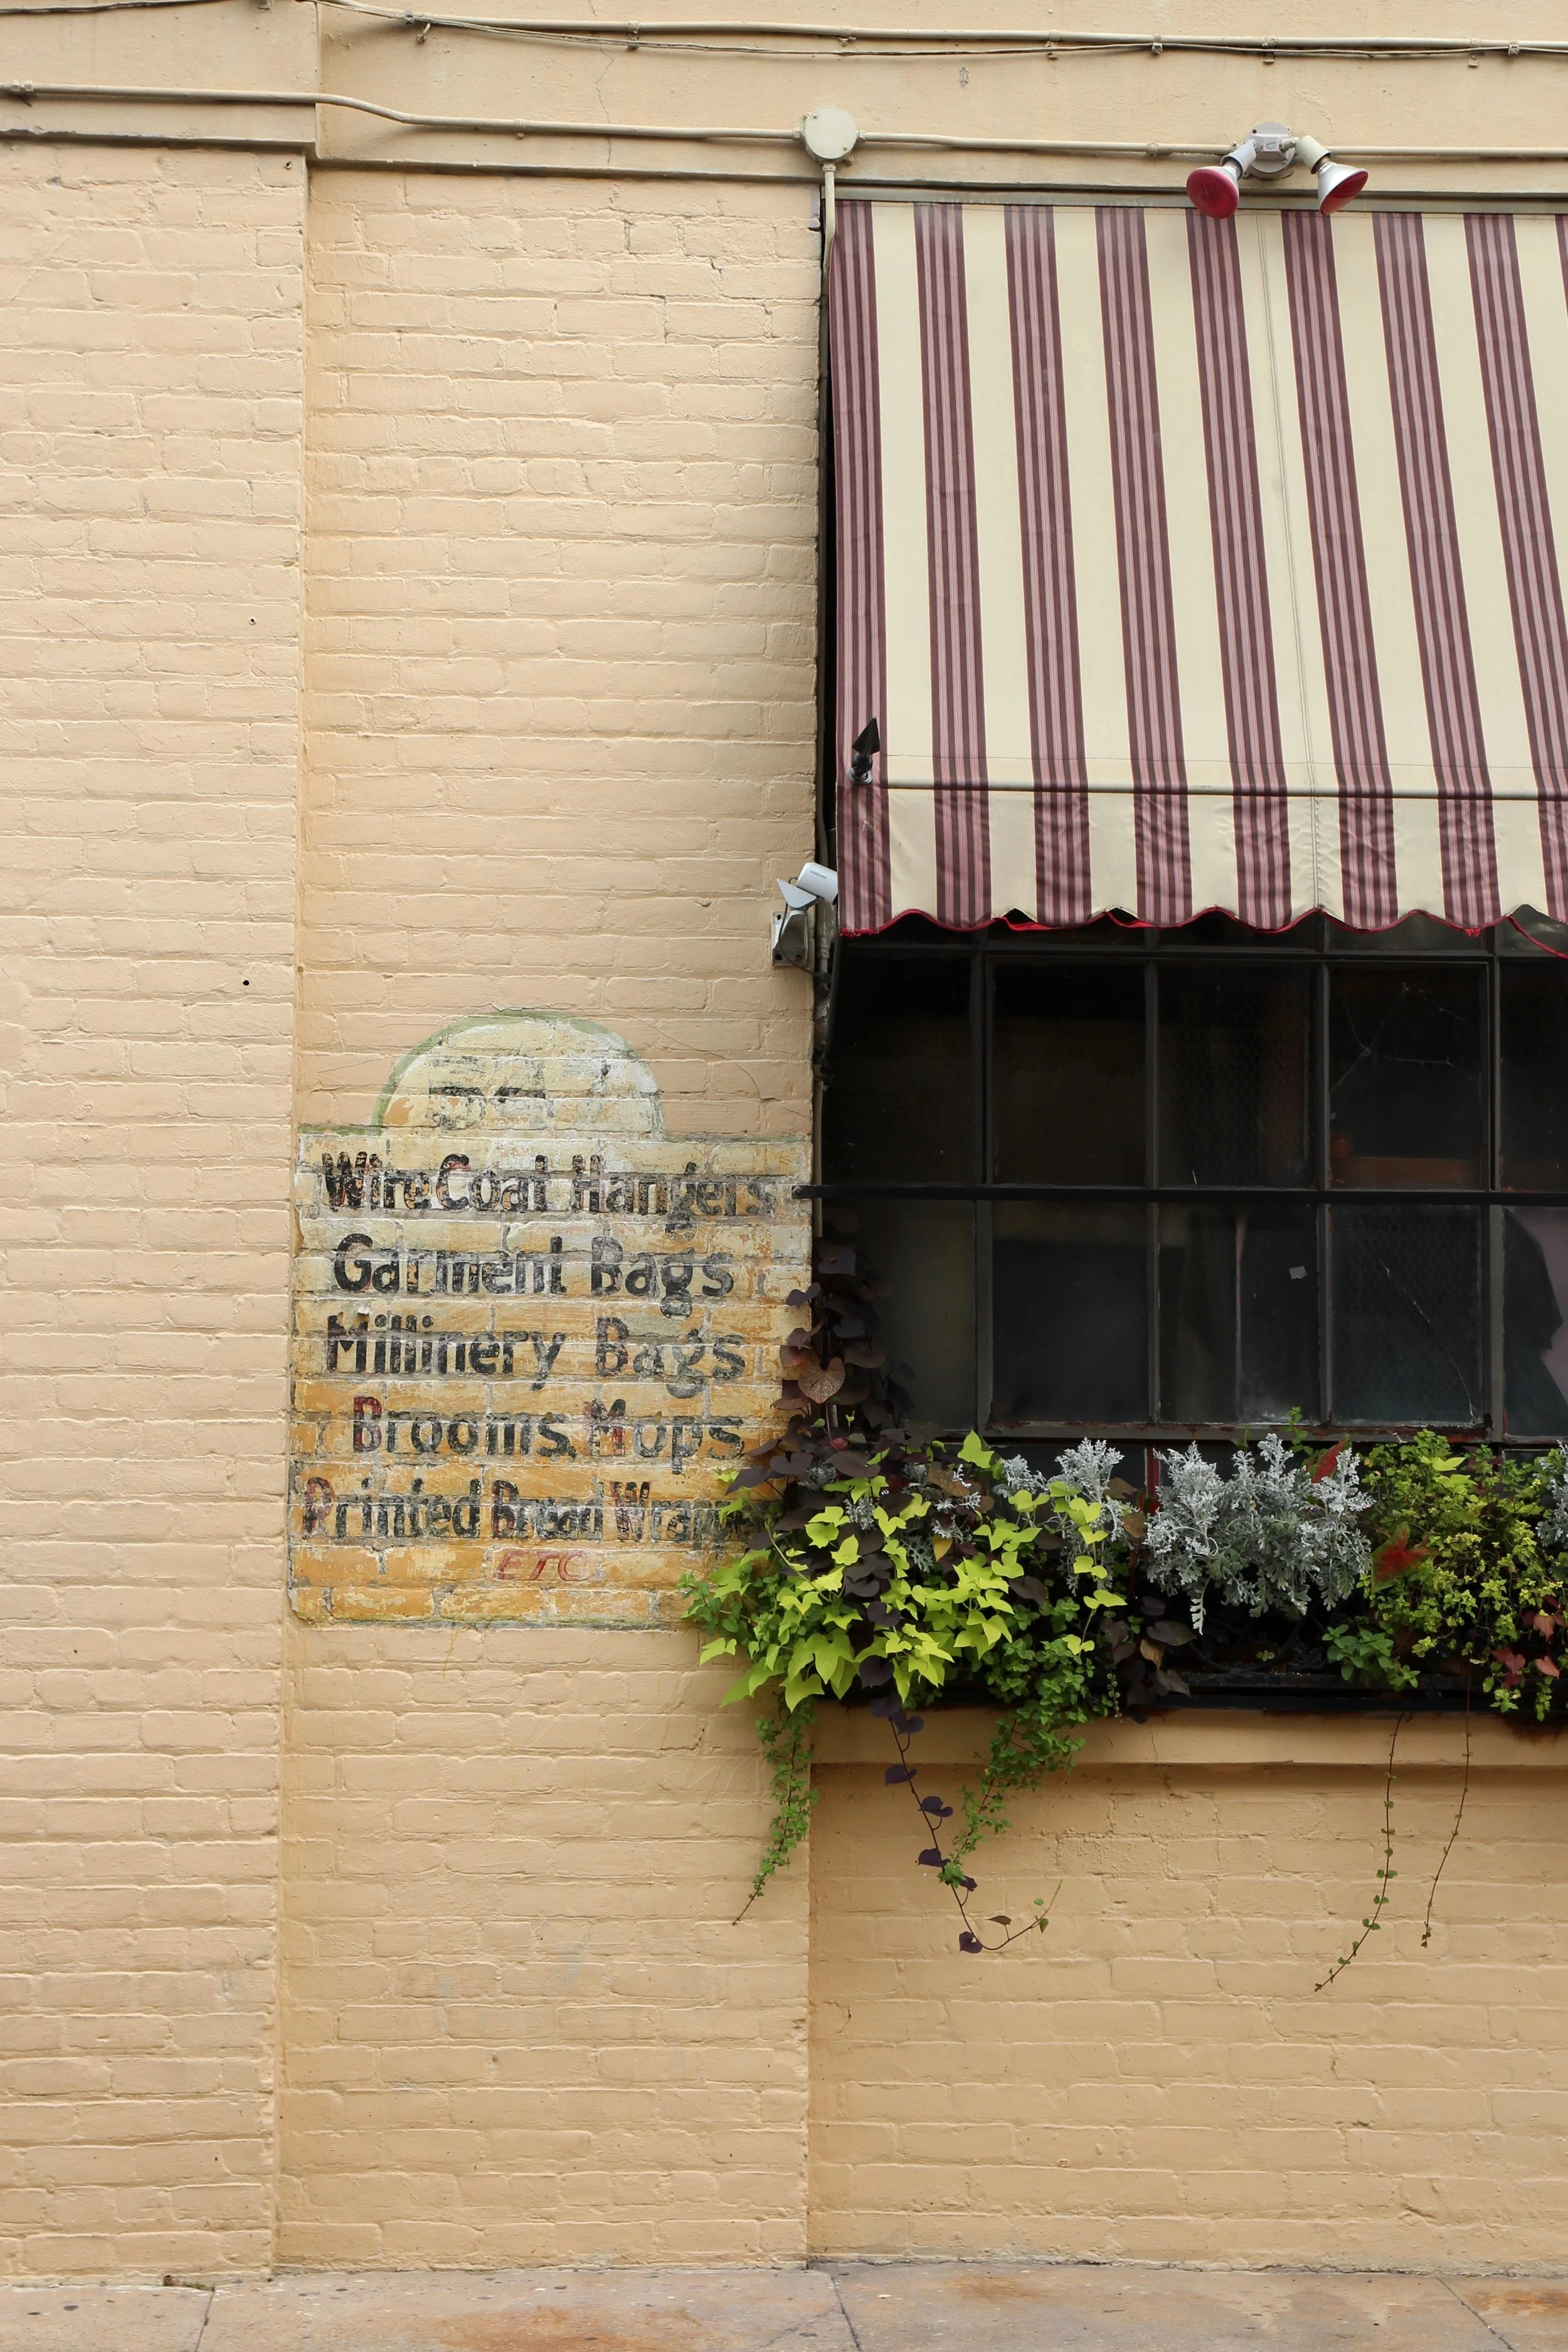 SAMSUNG
Wire Coat Hangers
Garment Bags
Millinery Bags
Brooms, Mops
Printed Bread Wrappe
ETC